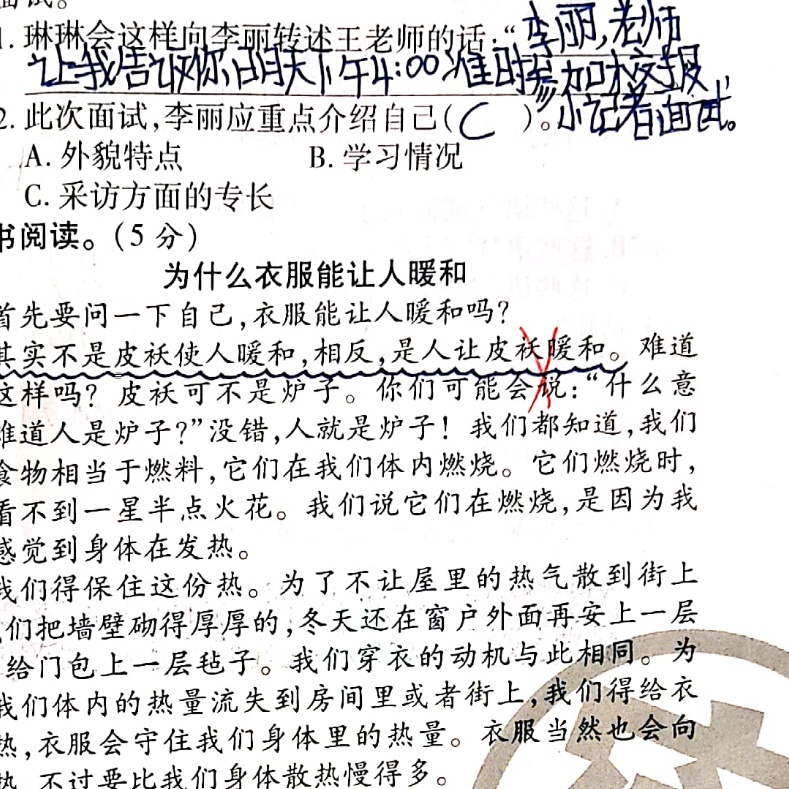 面试。
1. 琳琳会这样向李丽转述王老师的话:“李丽,老师
让我告诉你,明天下午4:00准时参加校报
小记者面试。”
2. 此次面试,李丽应重点介绍自己( C )。
A. 外貌特点 B. 学习情况
C. 采访方面的专长
书阅读。(5分)
为什么衣服能让人暖和
首先要问一下自己,衣服能让人暖和吗?
其实不是皮袄使人暖和,相反,是人让皮袄暖和。难道
这样吗? 皮袄可不是炉子。你们可能会说:“什么意
难道人是炉子?”没错,人就是炉子! 我们都知道,我们
食物相当于燃料,它们在我们体内燃烧。它们燃烧时,
看不到一星半点火花。我们说它们在燃烧,是因为我
感觉到身体在发热。
我们得保住这份热。为了不让屋里的热气散到街上
们把墙壁砌得厚厚的,冬天还在窗户外面再安上一层
给门包上一层毡子。我们穿衣的动机与此相同。为
我们体内的热量流失到房间里或者街上,我们得给衣
热,衣服会守住我们身体里的热量。衣服当然也会向
热,不过要比我们身体散热慢得多。